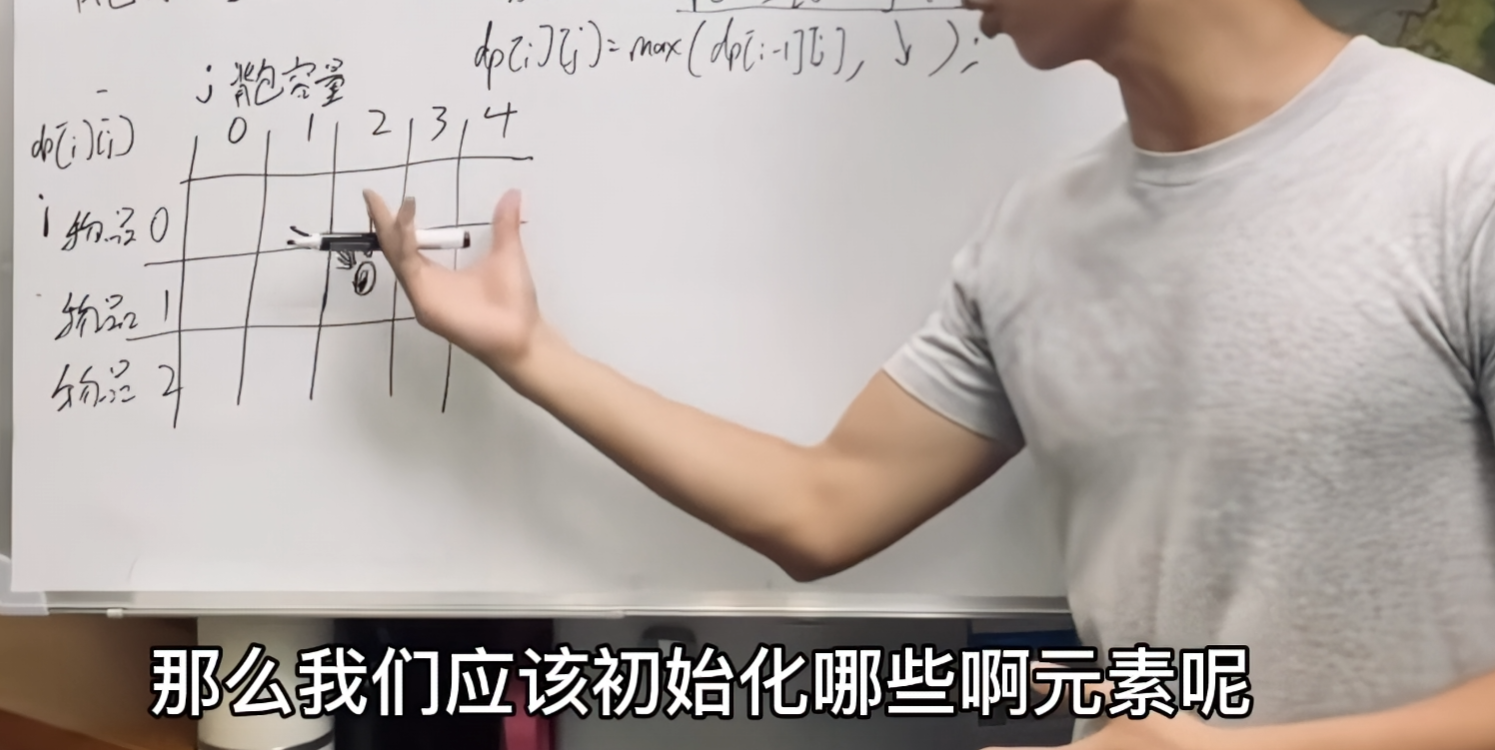 dp[i][j]=max(dp[i-1][j], ↓);
j 背包容量
dp[i][j] 0 1 2 3 4
i 物品0
物品1
物品2
那么我们应该初始化哪些啊元素呢